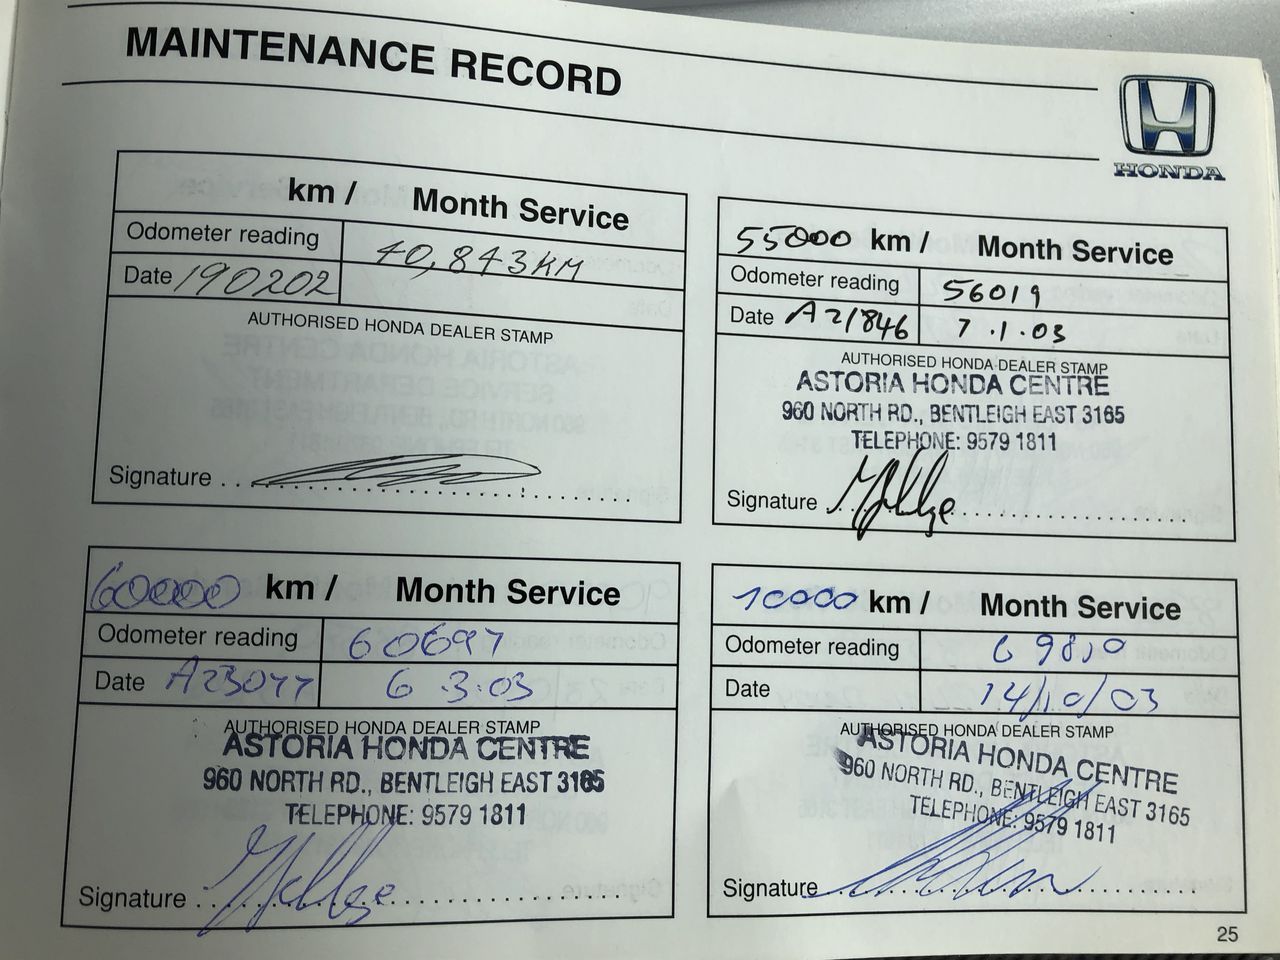 MAINTENANCE RECORD
HONDA
km / Month Service
Odometer reading 40,843KM
Date 190202
AUTHORISED HONDA DEALER STAMP
Signature
55000 km / Month Service
Odometer reading 56019
Date A21846 7.1.03
AUTHORISED HONDA DEALER STAMP
ASTORIA HONDA CENTRE
960 NORTH RD., BENTLEIGH EAST 3165
TELEPHONE: 9579 1811
Signature
60000 km / Month Service
Odometer reading 60697
Date A23077 6.3.03
AUTHORISED HONDA DEALER STAMP
ASTORIA HONDA CENTRE
960 NORTH RD., BENTLEIGH EAST 3165
TELEPHONE: 9579 1811
Signature
10000 km / Month Service
Odometer reading
Date 14/10/03
AUTHORISED HONDA DEALER STAMP
ASTORIA HONDA CENTRE
960 NORTH RD., BENTLEIGH EAST 3165
TELEPHONE: 9579 1811
Signature
25